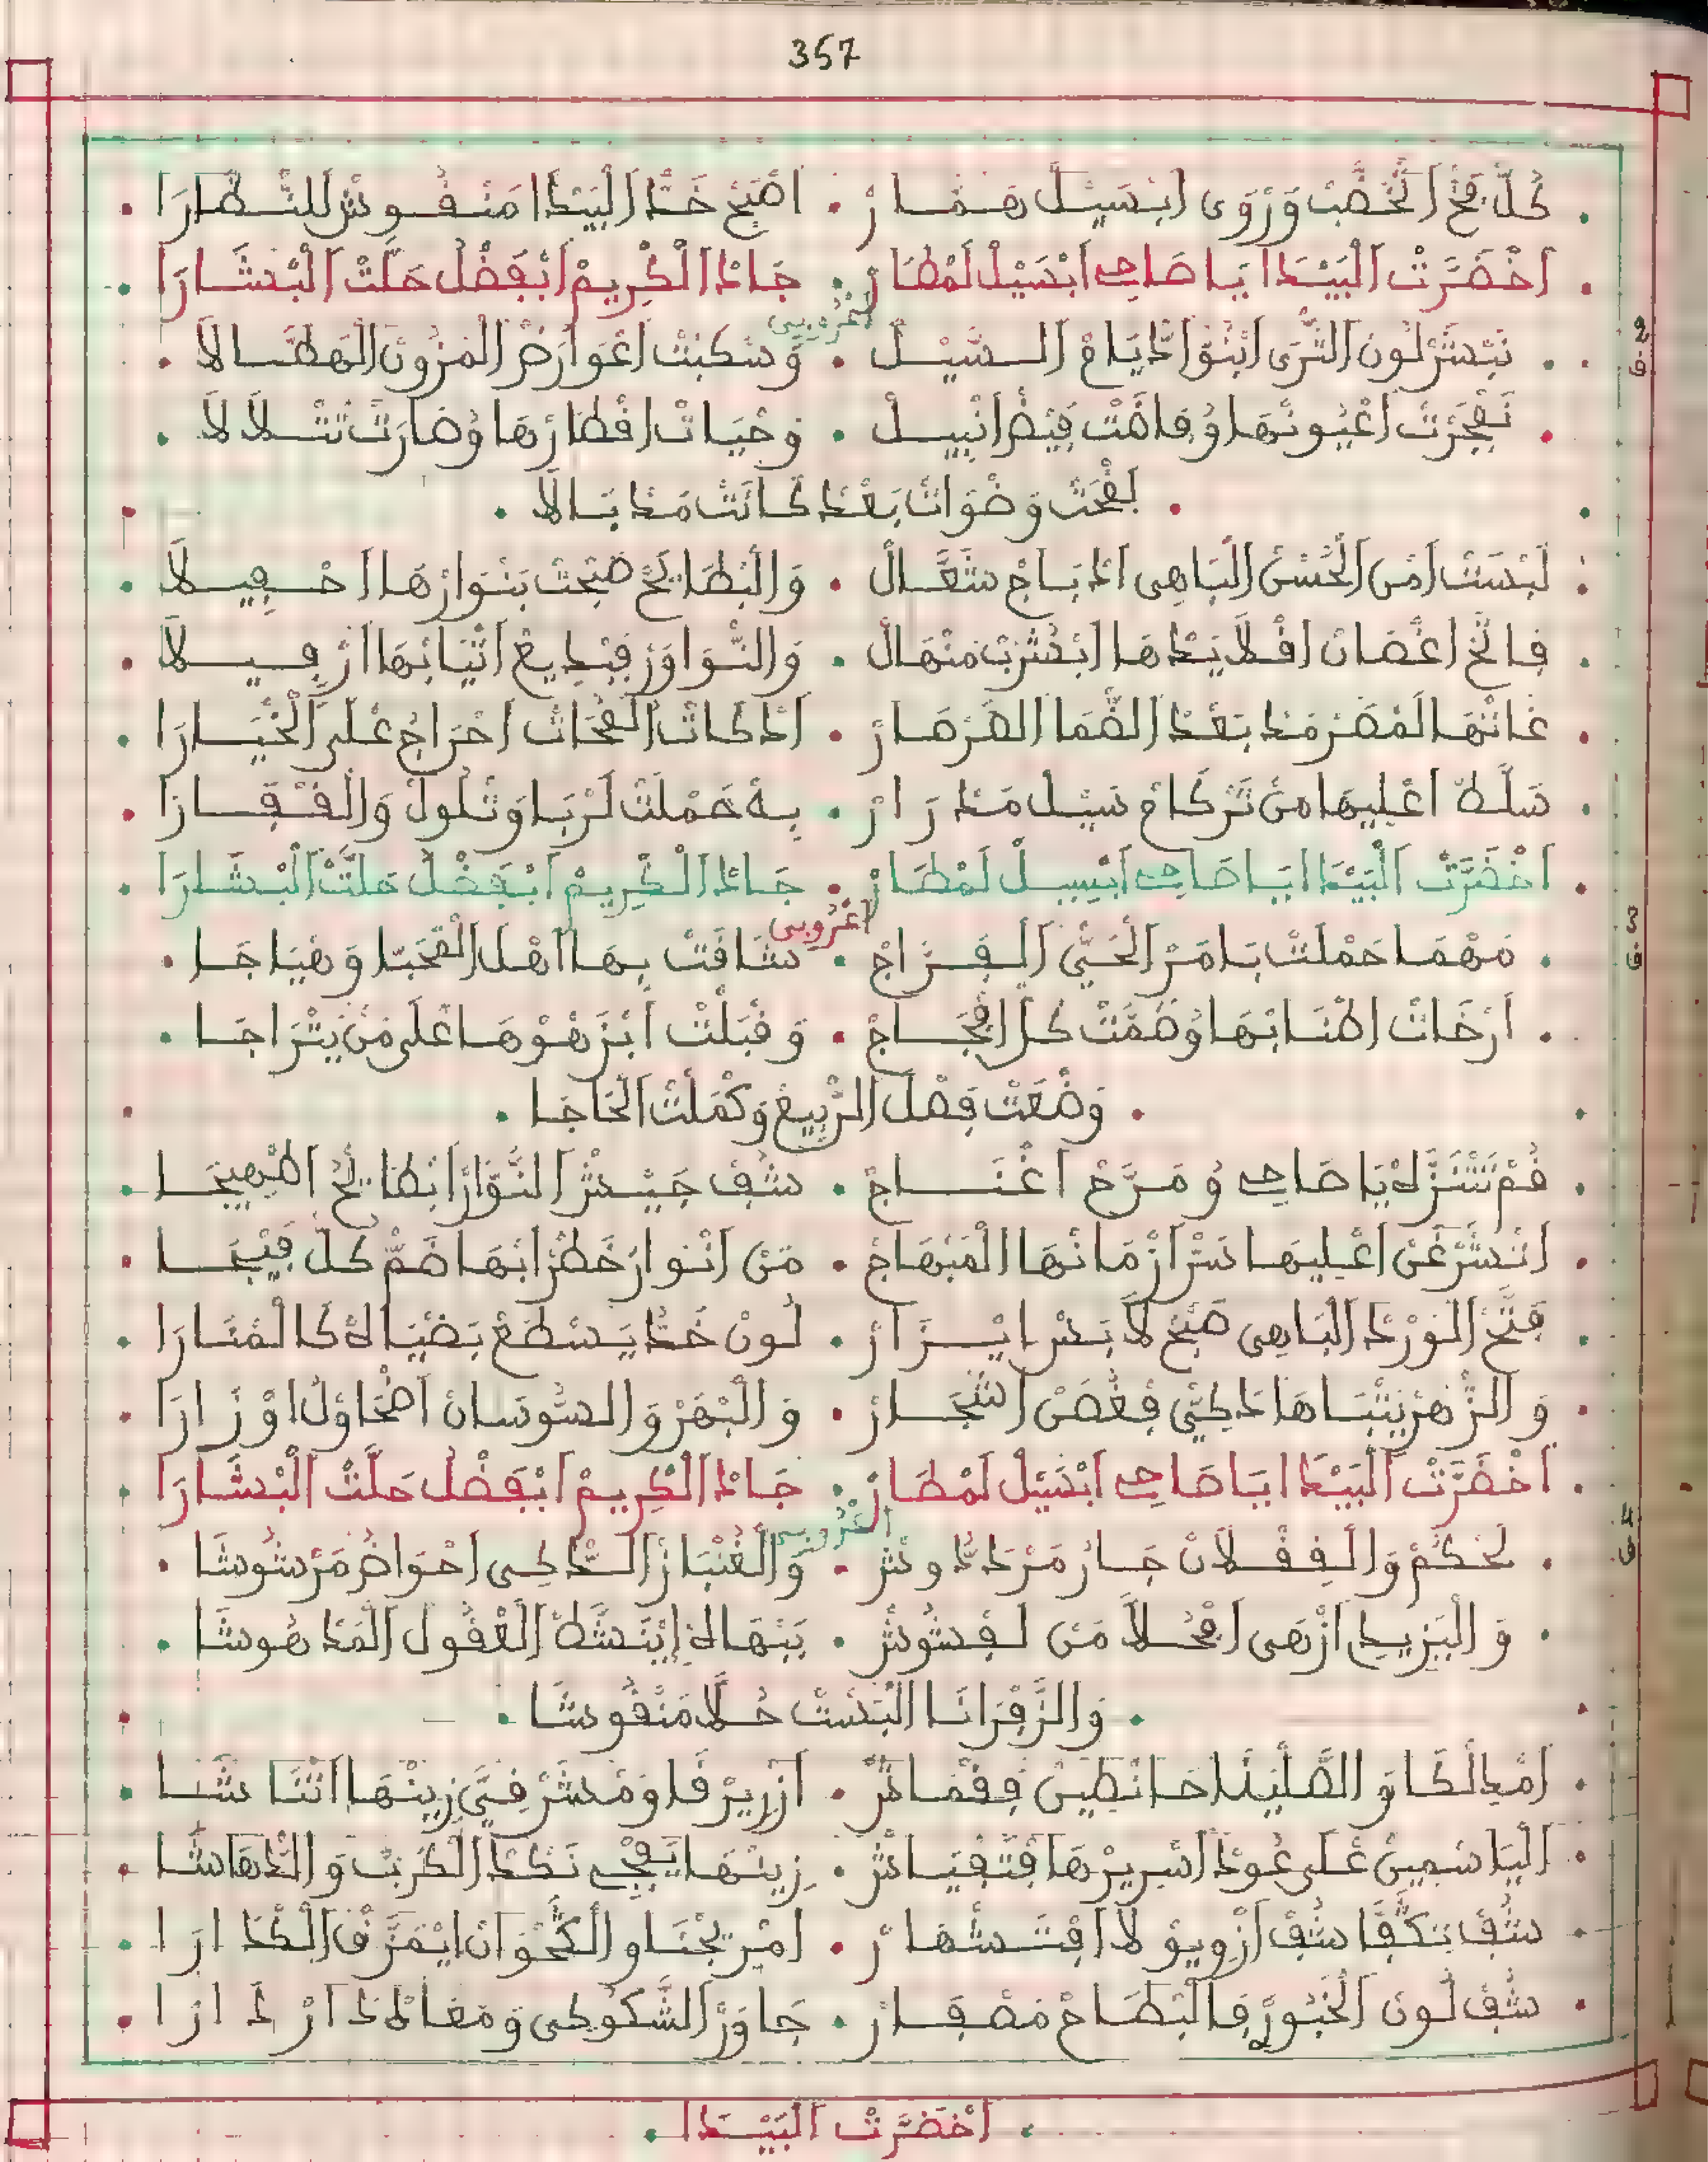 357
كُلّ فَجّ اَتْخَصَّبْ وَرْوَى اَبْسَيْل هَمَّارْ . اصْبَحْ خَدّ اَلْبَيْدَا مَنْقُوشْ لَلنّْظَارَا
اَخْضَرَّتْ اَلْبَيْدَا ايَاصَاحِ اَبْسَيْل لَمْطَارْ . جَادْ اَلْكْرِيمْ اَبْفَضْلُ حَلَّتْ اَلْبْشَارَا
اعْرُوبِي
ف 2
نَبْشَرْ لُون الثّْرَى اَبْنَوْ اَدْيَاحْ السَّيْلْ . وَسْكَبْتْ اَعْوَارَضْ المْزُونْ الهَطَّالَا
تَفْجَرْتْ اَعْيُونْهَا وُفَاضَتْ فَيْضْ اَنْبِيلْ . وَحْيَاتْ اقْطَارْهَا وُصَارَتْ تَتْلَالَا
لَقْحَتْ وَضْوَاتْ بَعْدْ كَانَتْ مَدْبَالَا
لَبْسَتْ اَمْنَ الْحُسْنْ اَلْبَاهِي اَدْبَاجْ شَعَّالْ . وَالْبْطَايَحْ صَبْحَتْ بَنْوَارْهَا احْفِيلَا
فَاتَحْ اغْصَانْ اقْلَايَدْهَا اَبْشُرْبْ مَنْهَالْ . وَالنّْوَاوَرْ فَبْدِيعْ اَثْيَابْهَا اَرْفِيلَا
غَاتْهَا لَمْصَرْمَدْ بَعْدْ الضّْمَا الصَّرْصَارْ . اَدْ كَاتْ اَلْقْحَاتْ احْرَاجْ عْلَى اَلْحْيَارَا
سَلَّطْ اَعْلِيهَا مَنْ تَرْكَاحْ سَيْل مَدْرَارْ . بِهْ حَمْلَتْ لَرْبَا وَتْلُولْ وَالْقْفَارَا
اَخْضَرَّتْ اَلْبَيْدَا ايَاصَاحِ اَبْسِيلْ لَمْطَارْ . جَادْ اَلْكْرِيمْ اَبْفَضْلُ حَلَّتْ اَلْبْشَارَا
اعْرُوبِي
ف 3
مَهْمَا حَمْلَتْ بَامَرْ اَلْحَيّْ اَلْفَرَّاجْ . شَافَتْ بِهَا اَهْلْ اَلْمْحَبَّا وَهْيَاجَا
اَرْخَاتْ اطْنَابْهَا وُضَمَّتْ كَلّ افْجَاجْ . وَقْبَلْتْ اَبْزَهْوْهَا عْلَى مَنْ يَتْرَاجَا
وَضْعَتْ فَصْلْ الرّْبِيعْ وَكْمَلْتْ اَلْحَاجَا
قُمْ تَتْنَزَّهْ يَاصَاحِ وُ مَرَّحْ اَغْنَاجْ . شُفْ جَيْشْ النّْوَارْ اَبْطَايَحْ اَطْبِهِيجَا
اَنْشَرْ غَنْ اعْلِيهَا سَرّْ اَزْمَانْهَا الْمَبْهَاجْ . مَنْ اَنْوَارْ خَطْرْ ابْهَا ضَمّْ كُلّ فَيْجَا
فَتَّحْ اَلْوَرْدْ اَلْبَاهِي صْبَحْ لَابَشْ ايْزَارْ . لُونْ خَدُّ يَسْطَعْ بَضْيَاهْ كَالْمْنَارَا
وَالزّْهَرْ يَتْبَاهَا دَكِيّْ فَغْصَنْ اَشْجَارْ . وَالْبْهَرْ وَالسُّوسَانْ اَضْحَاوْلُ اوْزَارَا
اَخْضَرَّتْ اَلْبَيْدَا ايَاصَاحِ اَبْسَيْل لَمْطَارْ . جَادْ اَلْكْرِيمْ اَبْفَضْلُ حَلَّتْ اَلْبْشَارَا
اعْرُوبِي
ف 4
لَحْكَمْ وَالْفِفْلَانْ جَارْ مَرْدَدُّوشْ . وَالْعَنْبَارْ الدّْكِي احْوَاضُ مَرْشُوشَا
وَالْيَزِيدِ اَزْهَى اَفْحُلَّا مَنْ لَفْشُوشْ . بَبْهَاهْ اِيْنَشَّطْ اَلْعْقُولْ اَلْمَدْهُوشَا
وَالزَّفْرَانَا اَلْبَسْتْ حُلَّا مَنْقُوشَا
اَمْدَلْكَا وَالصّْلِيلَا حَانْطِينْ فَقْمَاشْ . اَزْرِيرْقَا وَمْشَرْفِيَّ زِينْهَا اَنْتَاشَا
اَلْيَاسْمِينْ عْلَى عُودْ اَسْرِيرْهَا فْتَقْيَاشْ . زِينْهَا يَفْجِي نَكْدْ اَلْكَرْبْ وَالدّْهَاشَا
شُفْ تَكَفَّا شُفْ اَزْوِيوْلَا اَفْتَشْهَارْ . اَمْرِيْحْنَا وَالْكَّحْوَانْ ايْمَزَّقْ اَلْكْدَارَا
شُفْ لُونْ اَلْخَبُّورْ فَالْبْطَاحْ مَصْفَارْ . جَاوَرْ اَلشَّكُوكِي وَمْعَاهْ دَارْ دَارَا
اَخْضَرَّتْ اَلْبَيْدَا